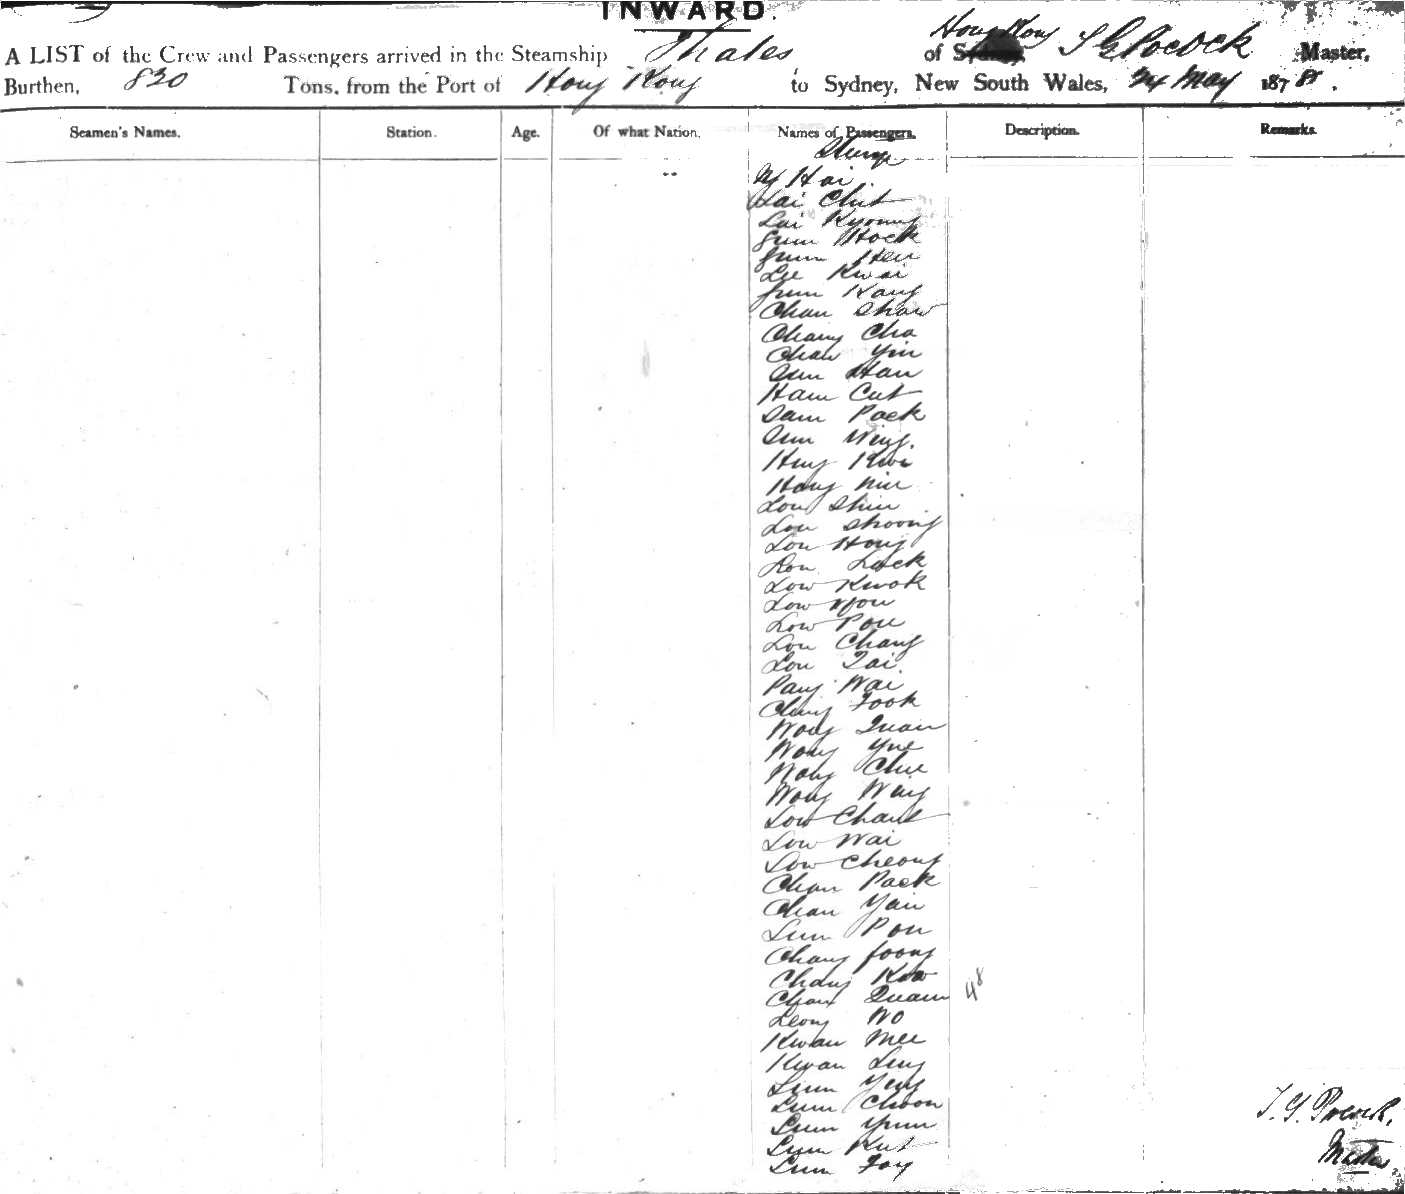 INWARD.
A LIST of the Crew and Passengers arrived in the Steamship Thales of Hong Kong T G Pocock Master,
Burthen, 820 Tons, from the Port of Hong Kong to Sydney, New South Wales, 24 May 1878.
Seamen's Names. Station. Age. Of what Nation. Names of Passengers. Description. Remarks.
Hai
Lai Chut
Lai Kyoung
Gum Hock
Gum Hen
Lee Kwai
Gum Kang
Chan Shaw
Chang Cha
Chan Yin
Sun Han
Ham Cut
Sam Pack
Sun Wing.
Hing Kwi
Hong Nin
Lou Shin
Lou Shoong
Lou Hong
Lou Lack
Low Kwok
Low You
Low Pou
Lou Chang
Lou Tai.
Pang Wai
Ching Fook
Wong Quan
Wong Yue
Wong Chie
Wong Wing
Low Chant
Low Wai
Low Cheong
Chan Pack
Chan Yan
Lum Pou
Chang Foong
Chang Koo
Chan Quan 48
Leong Wo
Kwan Mee
Kwan Ling
Lum Yeng
Lum Choon
Lum Yum
Lum Kut
Lum Foy
T. G. Pocock,
Master